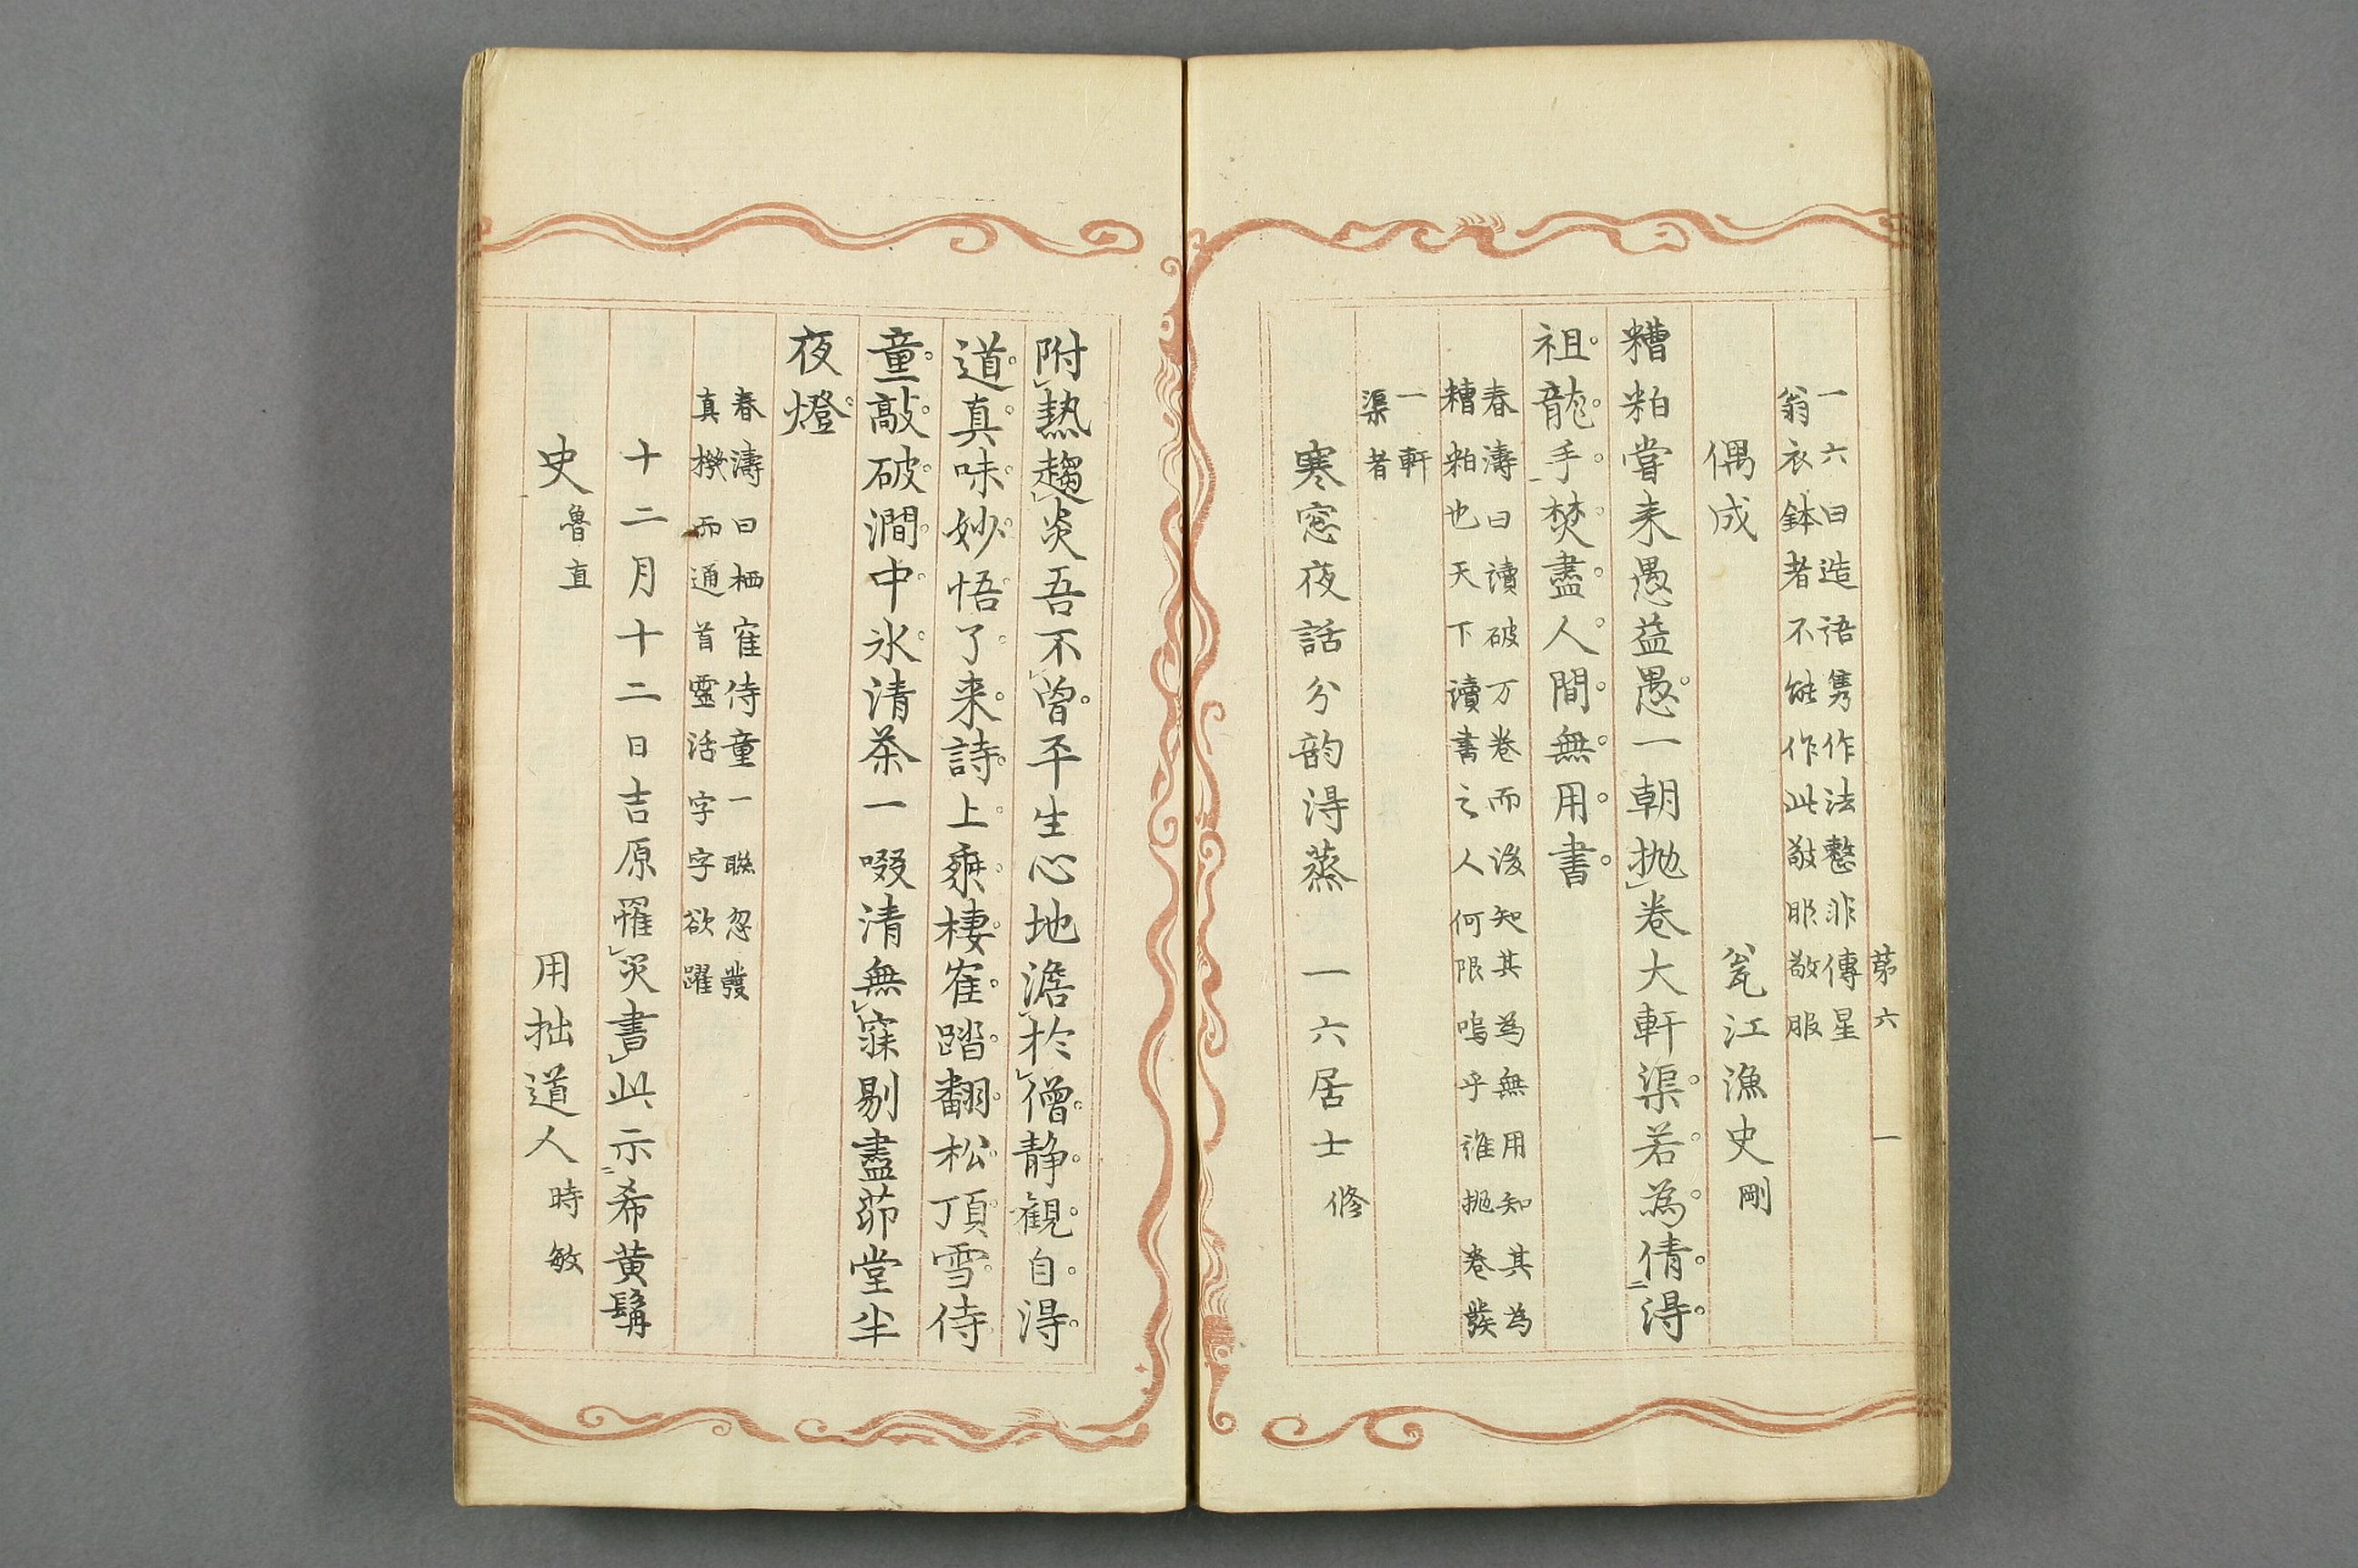 第六　一
一六曰造語雋作法整非傳星
翁衣鉢者不能作此敬服敬服
偶成　瓮江漁史剛
糟粕甞来愚益愚一朝抛卷大軒渠若為倩得
祖龍手焚盡人間無用書
春濤曰讀破万卷而後知其為無用知其為
糟粕也天下讀書之人何限嗚乎誰抛卷發
一軒
渠者
寒窓夜話分韵得蒸　一六居士修
附熱趨炎吾不曽平生心地澹於僧静観自得
道真味妙悟了来詩上乗棲寉踏翻松頂雪侍
童敲破澗中氷清茶一啜清無寐剔盡茆堂半
夜燈
春濤曰栖寉侍童一聯忽發
真機而通首靈活字字欲躍
十二月十二日吉原罹災書此示希黄髯
史魯直　用拙道人時敏